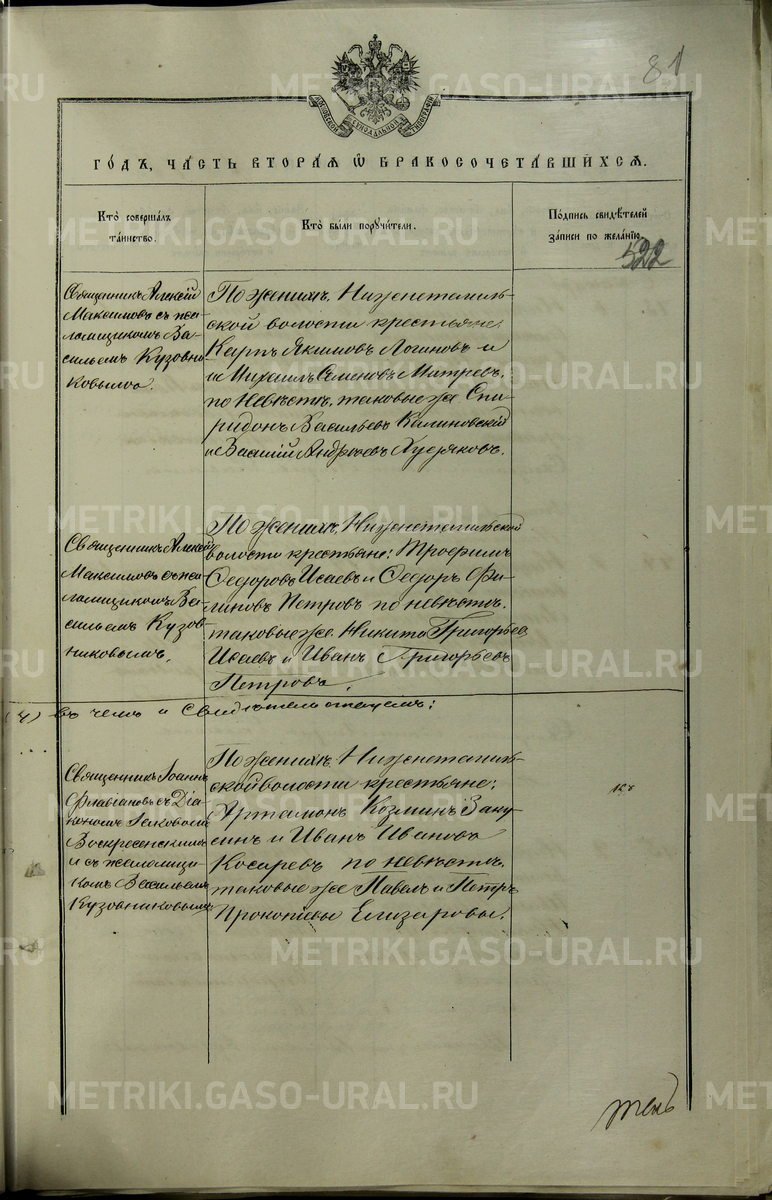 81
МОСКОВСКОЙ СѴНОДАЛЬНОЙ ТИПОГРАФІИ
ГО́ДЪ, ЧАСТЬ ВТОРАЯ Ѿ БРАКОСОЧЕТАВШИХСЯ.
Кто̀ соверша́лъ
та́инство.
Кто̀ бы́ли поручи́тели.
По́дпись свидѣ́телей
за́писи по жела́нію.
522
Священникъ Алексій
Максимовъ съ пса-
ломщикомъ Ва-
сильемъ Кузовни-
ковымъ.
По женихѣ: Нижнетагиль-
ской волости крестьяне:
Карпъ Якимовъ Логиновъ и
и Михаилъ Семеновъ Митревъ,
по невѣстѣ, таковые же Спи-
ридонъ Васильевъ Калиновскій
и Василій Андреевъ Худяковъ.
Священникъ Алексій
Максимовъ съ пса-
ломщикомъ Ва-
сильемъ Кузов-
никовымъ.
По женихѣ, Нижнетагильской
волости крестьяне: Трофимъ
Федоровъ Исаевъ и Федоръ Фи-
липовъ Петровъ по невѣстѣ,
таковые же Никита Григорьев
Исаевъ и Иванъ Григорьевъ
Петровъ.
(ч) въ чемъ и свидѣтельствуемъ:
Священникъ Іоаннъ
Флавіановъ съ Діа-
кономъ Іаковомъ
Воскресенскимъ
и съ псаломщи-
комъ Васильемъ
Кузовниковымъ
По женихѣ: Нижнетагиль-
ской волости крестьяне:
Артамонъ Козминъ Заку-
синъ и Иванъ Ивановъ
Косаревъ по невѣстѣ,
таковые же Павелъ и Петръ
Прокопьевы Елизаровы.
METRIKI.GASO-URAL.RU